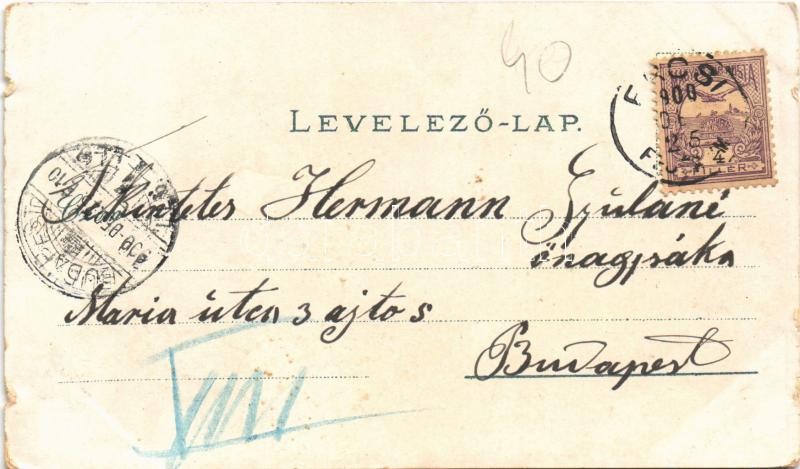 40
LEVELEZŐ-LAP.
Tekintetes Hermann Gyuláné
őnagysága
Maria útca 3 ajtó 5
Budapest
VIII